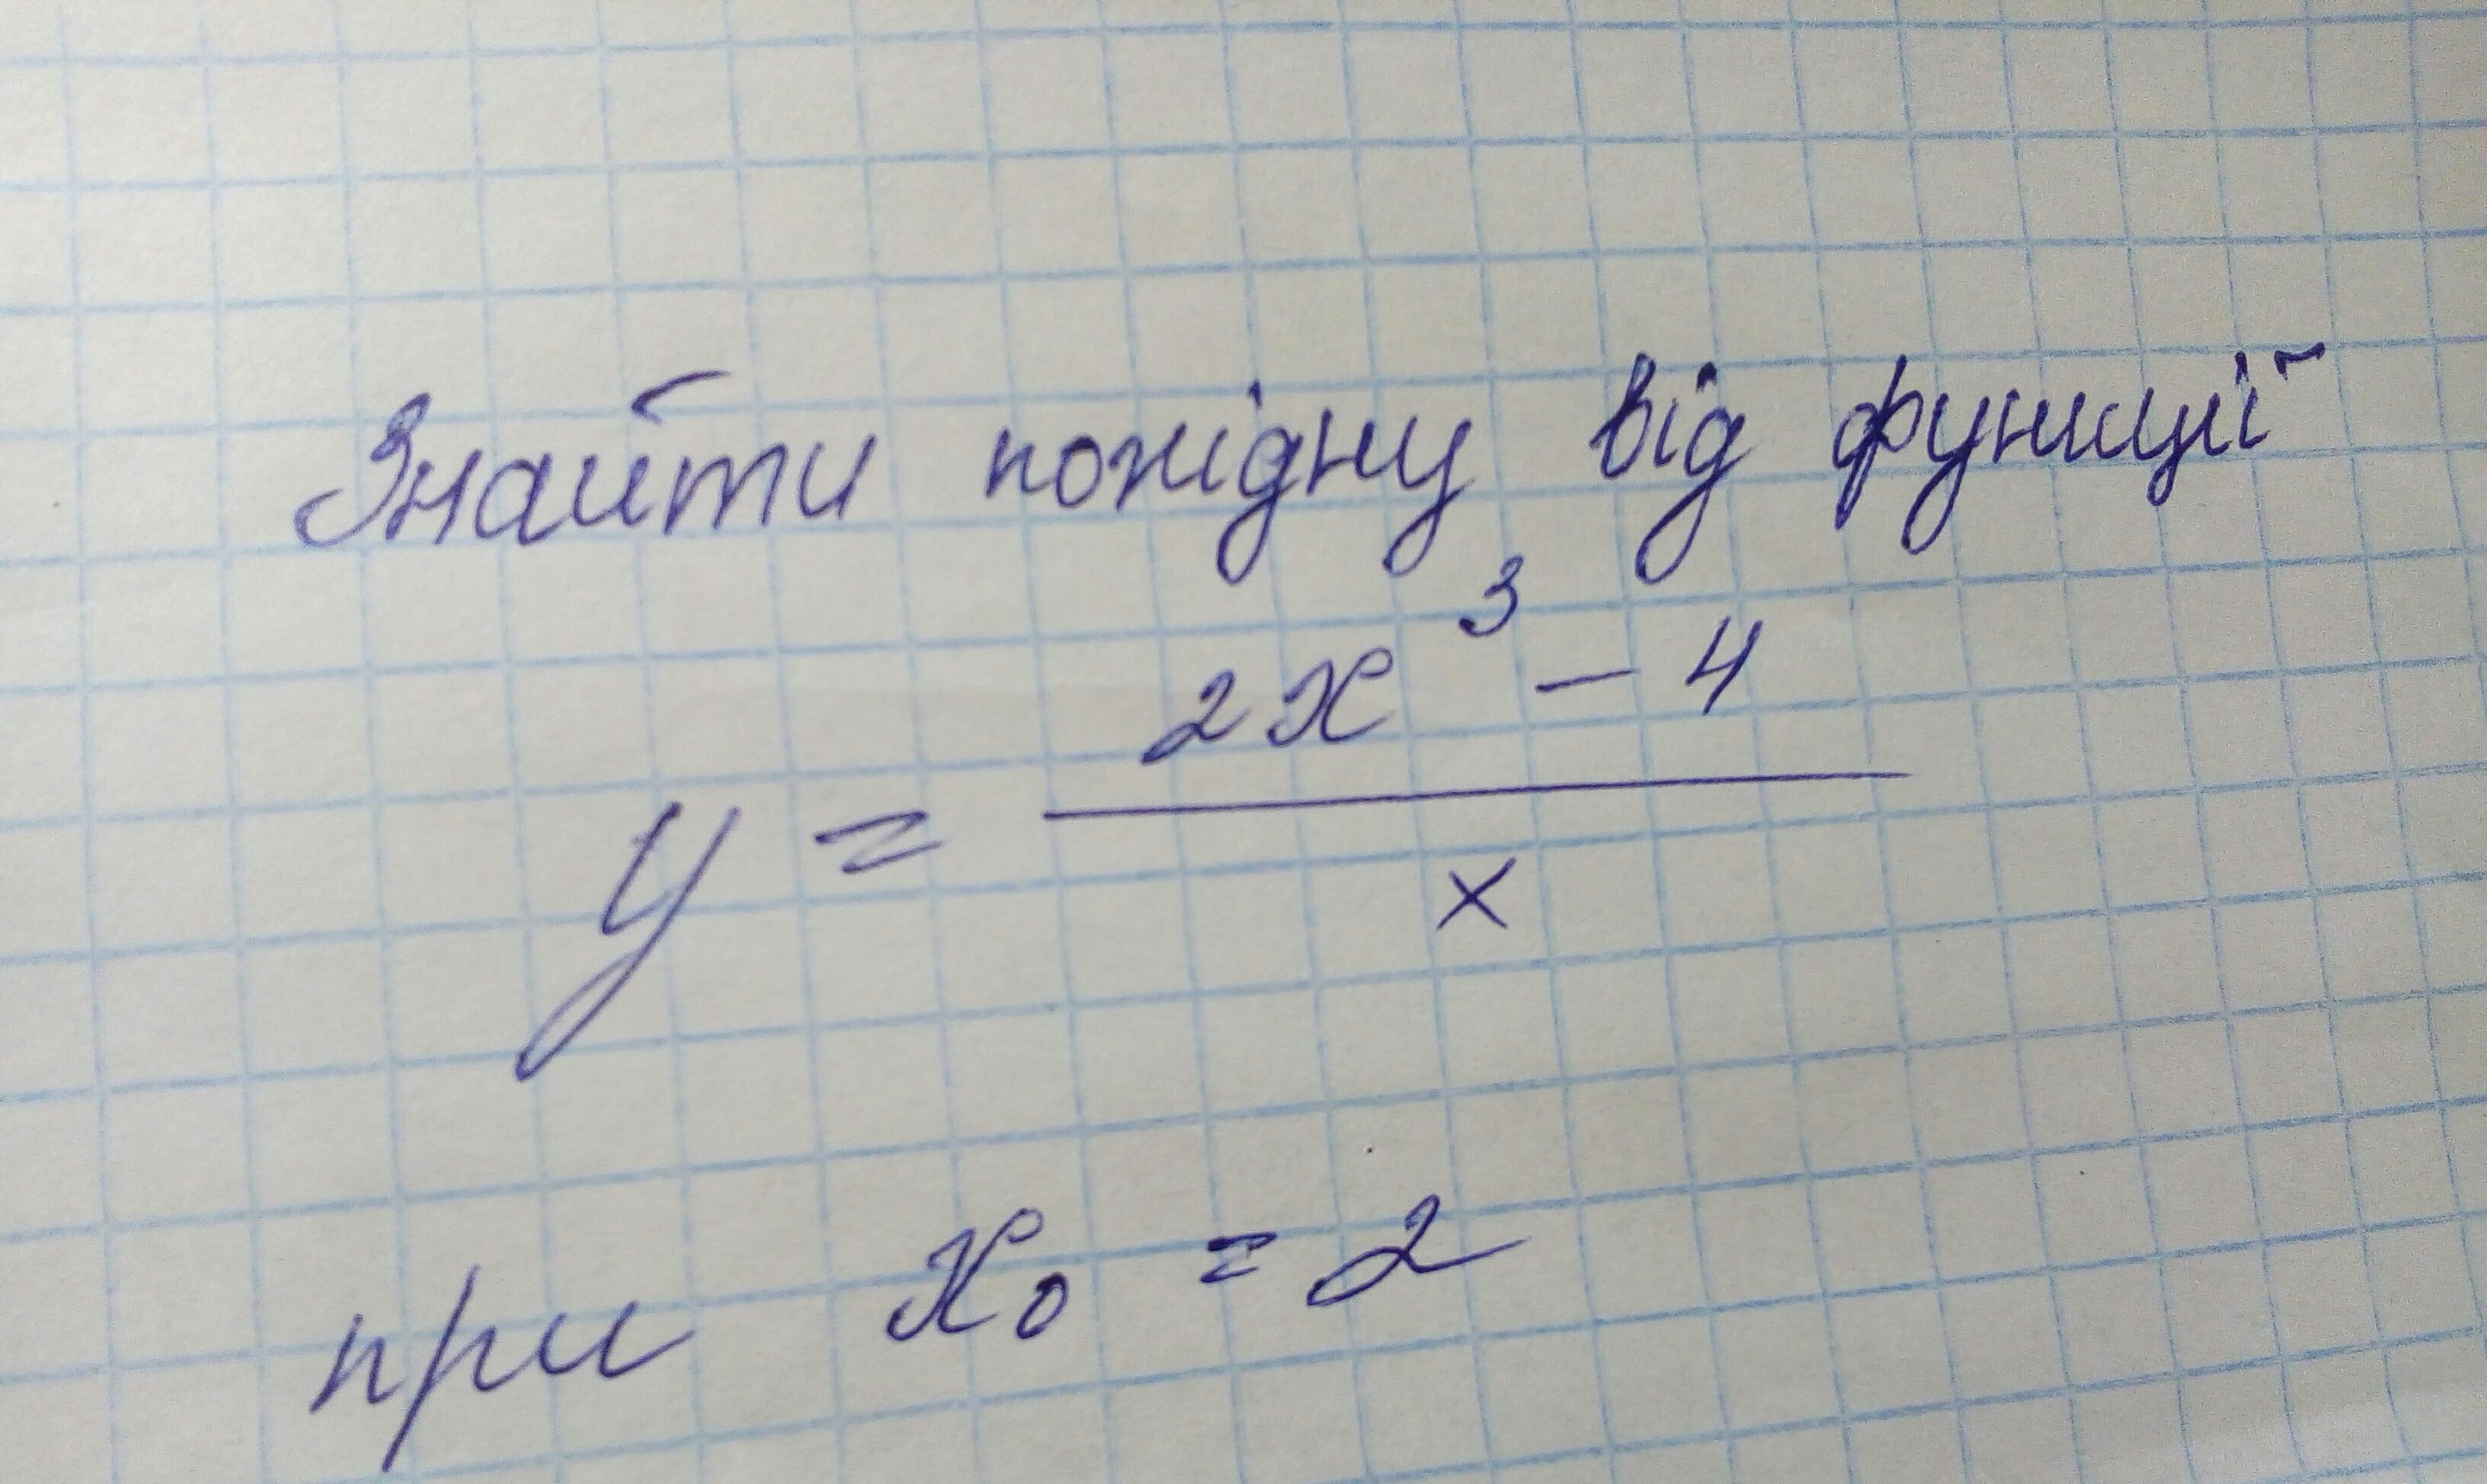 Знайти похідну від функції
y = (2x³ - 4) / x
при x₀ = 2